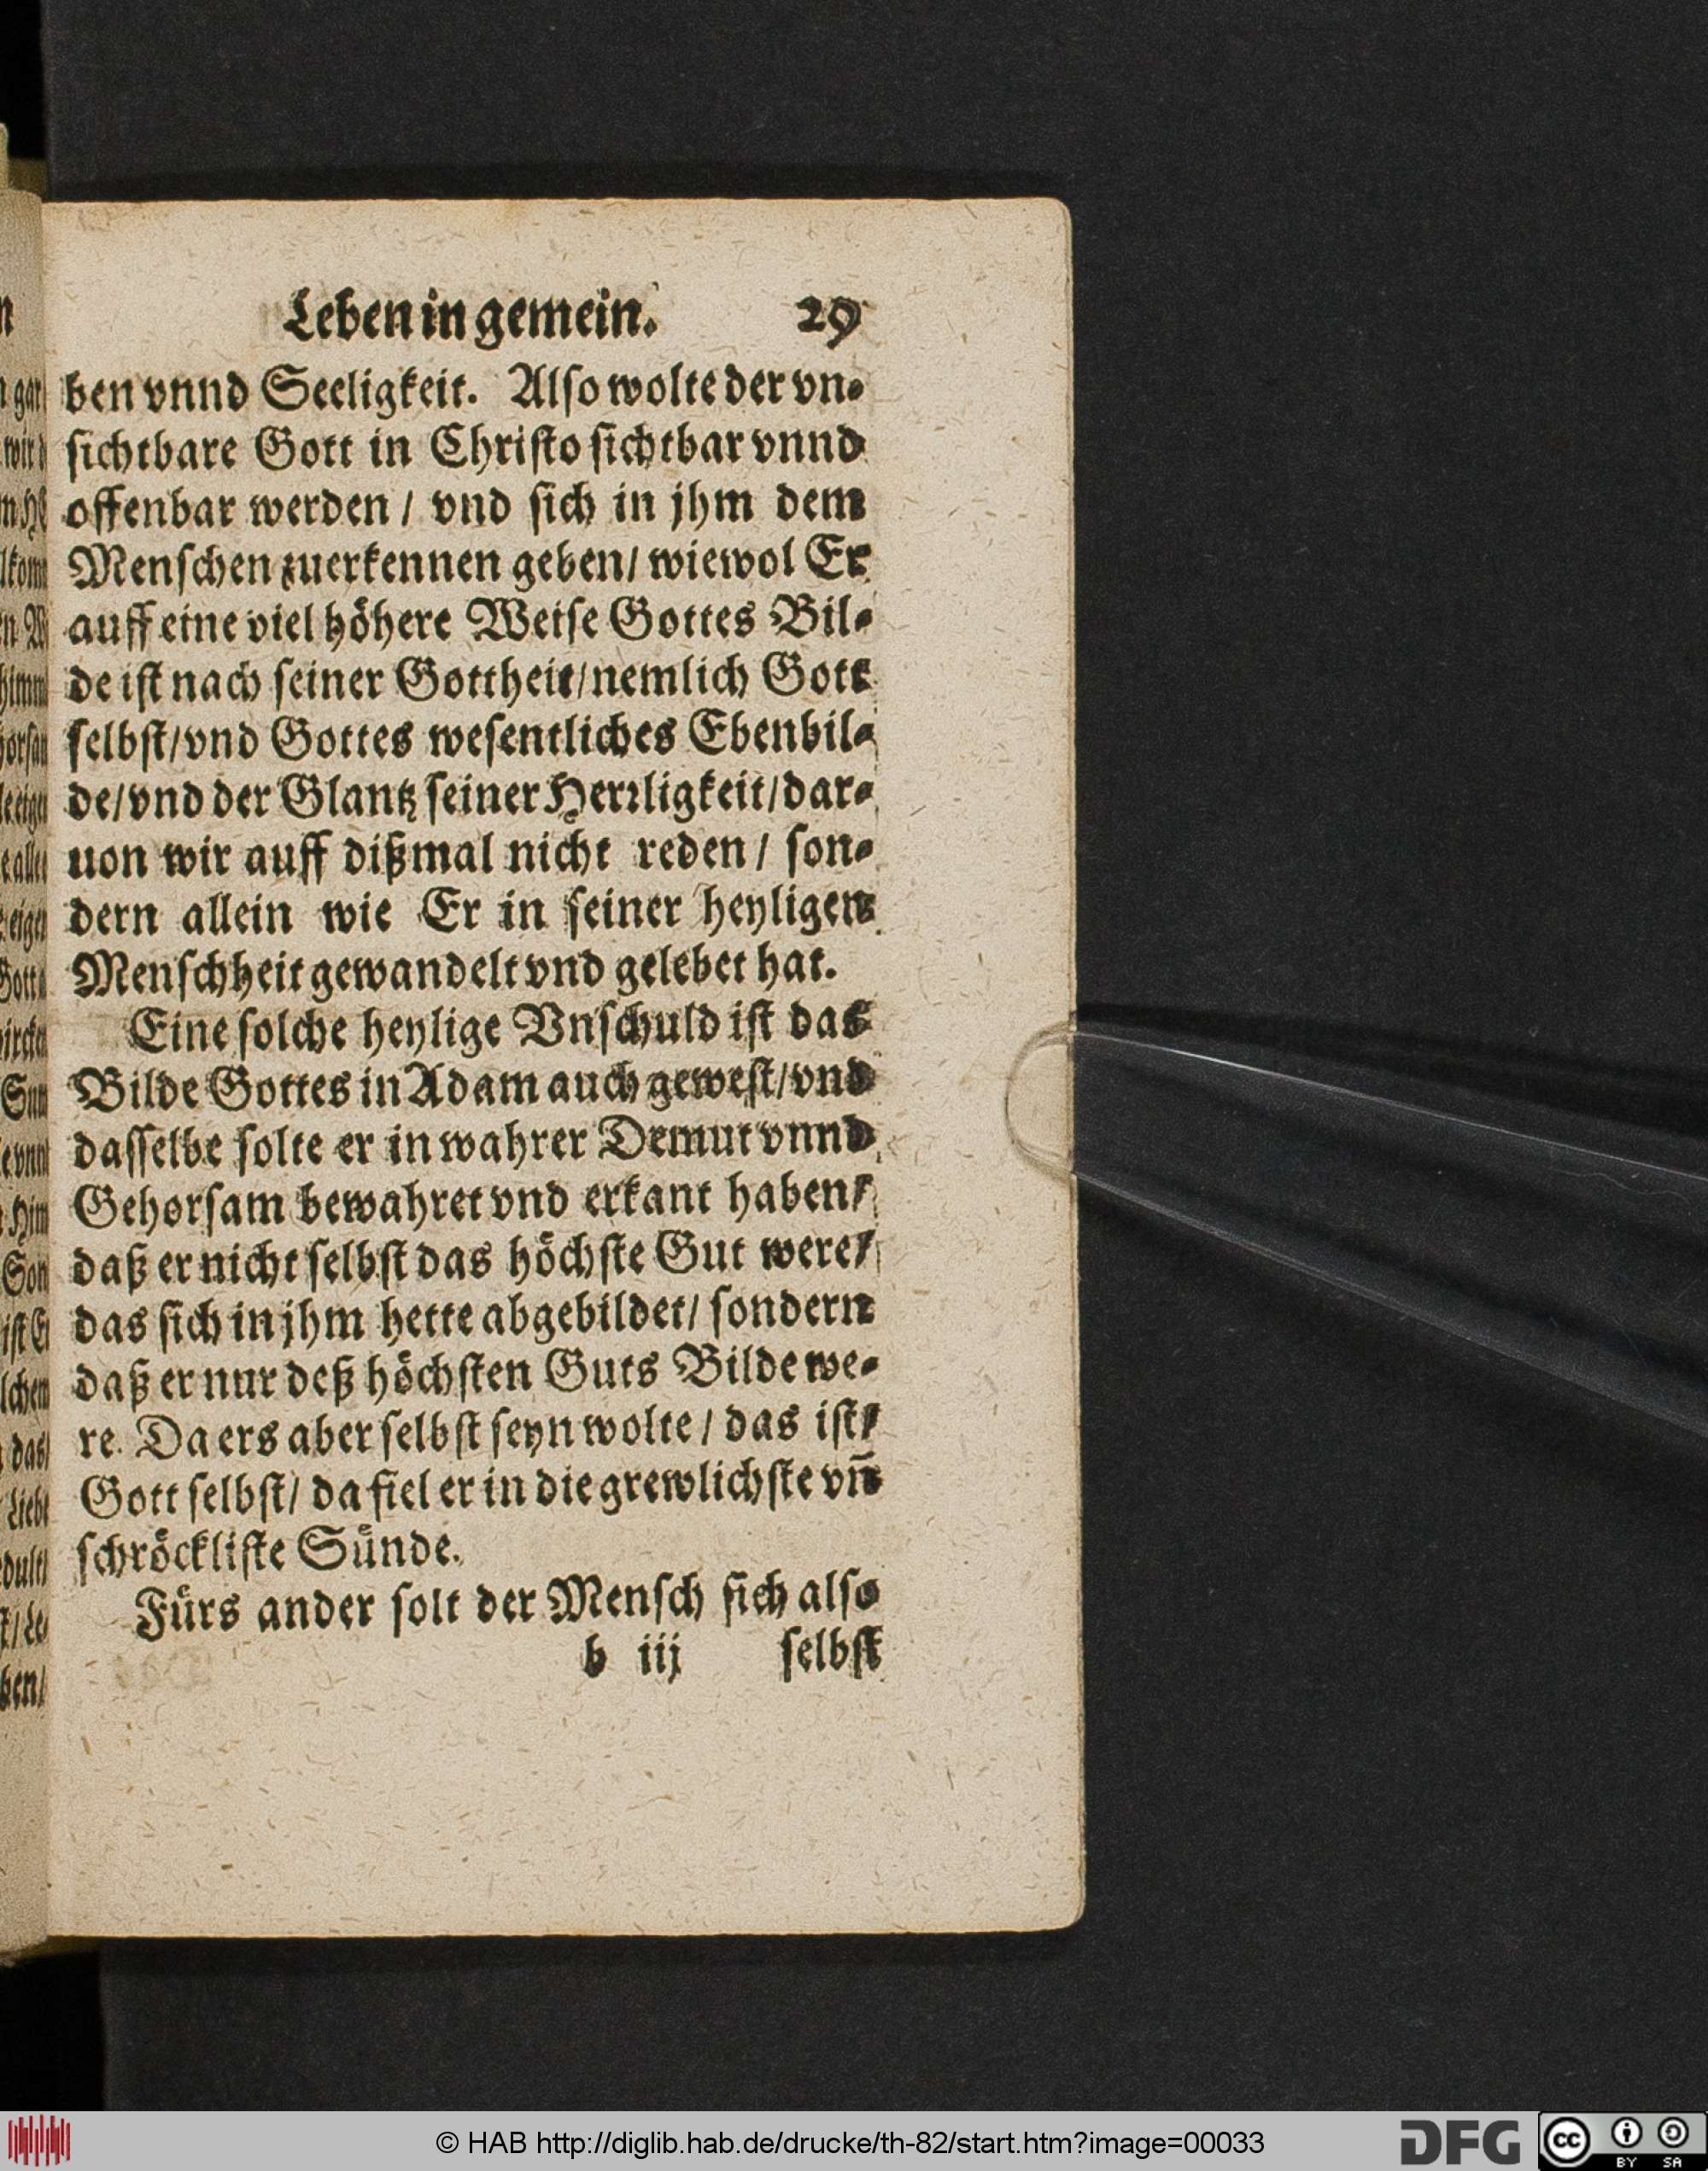 Leben in gemein. 29
ben vnnd Seeligkeit. Also wolte der vn-
sichtbare Gott in Christo sichtbar vnnd
offenbar werden / vnd sich in jhm dem
Menschen zuerkennen geben / wiewol Er
auff eine viel höhere Weise Gottes Bil-
de ist nach seiner Gottheit / nemlich Gott
selbst / vnd Gottes wesentliches Ebenbil-
de / vnd der Glantz seiner Herrligkeit / dar-
uon wir auff dißmal nicht reden / son-
dern allein wie Er in seiner heyligen
Menschheit gewandelt vnd gelebet hat.
Eine solche heylige Vnschuld ist das
Bilde Gottes in Adam auch gewest / vnd
dasselbe solte er in wahrer Demut vnnd
Gehorsam bewahret vnd erkant haben /
daß er nicht selbst das höchste Gut were /
das sich in jhm hette abgebildet / sondern
daß er nur deß höchsten Guts Bilde we-
re. Da ers aber selbst seyn wolte / das ist /
Gott selbst / da fiel er in die grewlichste vñ
schröckliste Sünde.
Fürs ander solt der Mensch sich also
b iij selbst
© HAB http://diglib.hab.de/drucke/th-82/start.htm?image=00033
DFG
cc BY SA